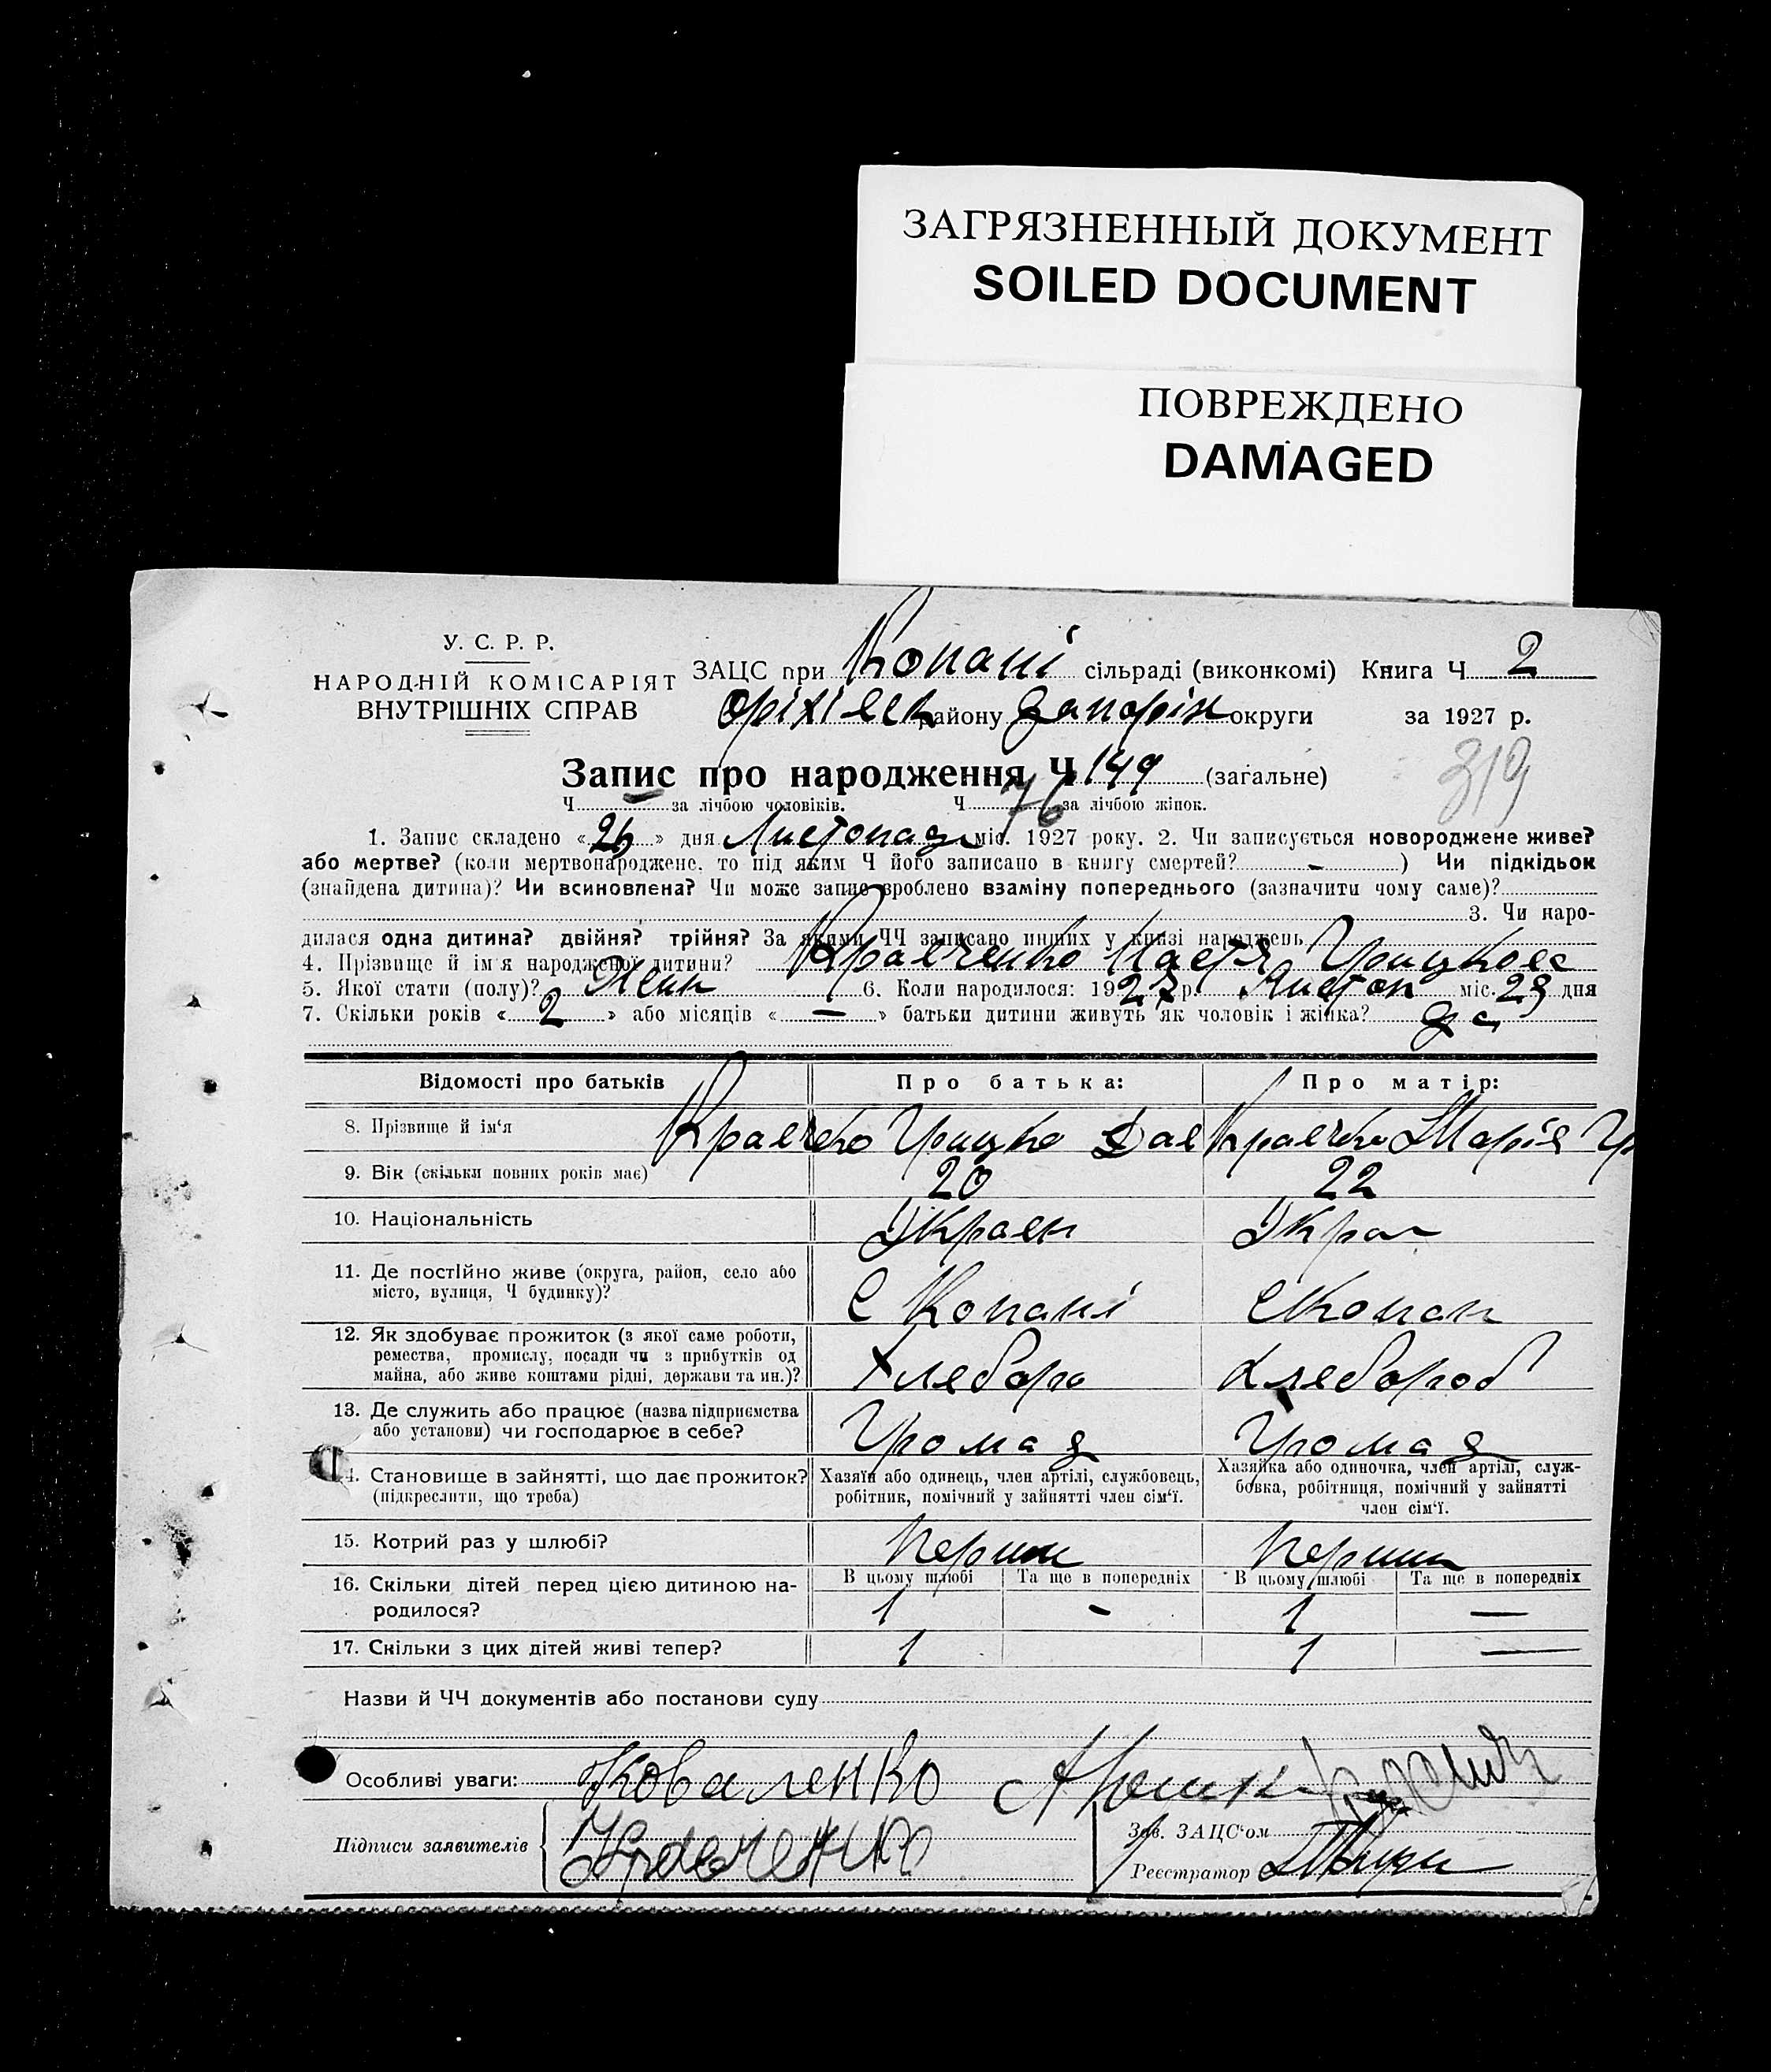 ЗАГРЯЗНЕННЫЙ ДОКУМЕНТ
SOILED DOCUMENT
ПОВРЕЖДЕНО
DAMAGED
У. С. Р. Р.
НАРОДНІЙ КОМІСАРІЯТ
ВНУТРІШНІХ СПРАВ
ЗАЦС при Копані сільраді (виконкомі) Книга Ч 2
Оріхівськ району Запоріж округи за 1927 р.
Запис про народження Ч 149 (загальне)
319
Ч — за лічбою чоловіків. Ч 76 за лічбою жінок.
1. Запис складено « 26 » дня Листопад міс. 1927 року. 2. Чи записується новороджене живе?
або мертве? (коли мертвонароджене, то під яким Ч його записано в книгу смертей? - ) Чи підкідьок
(знайдена дитина)? Чи всиновлена? Чи може запис зроблено взаміну попереднього (зазначити чому саме)?
3. Чи наро-
дилася одна дитина? двійня? трійня? За якими ЧЧ записано инших у книзі народжень
4. Прізвище й ім'я народженої дитини? Кравченко Настя Грицков
5. Якої стати (полу)? Жен 6. Коли народилося: 1927 р. Листоп міс. 23 дня
7. Скільки років « 2 » або місяців « — » батьки дитини живуть як чоловік і жінка? да
Відомості про батьків Про батька: Про матір:
8. Прізвище й ім'я Кравченко Грицко Дав Кравченко Марія Гр
9. Вік (скільки повних років має) 20 22
10. Національність Украен Укра
11. Де постійно живе (округа, район, село або
місто, вулиця, Ч будинку)? С Копані С Копан
12. Як здобуває прожиток (з якої саме роботи,
ремества, промислу, посади чи з прибутків од
майна, або живе коштами рідні, держави та ин.)? Хлеборо Хлебороб
13. Де служить або працює (назва підприємства
або установи) чи господарює в себе? Громад Громад
14. Становище в зайнятті, що дає прожиток?
(підкреслити, що треба)
Хазяїн або одинець, член артілі, службовець,
робітник, помічний у зайнятті член сім'ї.
Хазяйка або одиночка, член артілі, служ-
бовка, робітниця, помічний у зайнятті
член сім'ї.
15. Котрий раз у шлюбі? Перши Перши
16. Скільки дітей перед цією дитиною на-
родилося?
В цьому шлюбі Та ще в попередніх В цьому шлюбі Та ще в попередніх
1 - 1 —
17. Скільки з цих дітей живі тепер? 1 1 —
Назви й ЧЧ документів або постанови суду
Особливі уваги: Коваленко
Підписи заявителів Кравченко
Зав. ЗАЦС'ом
Реєстратор